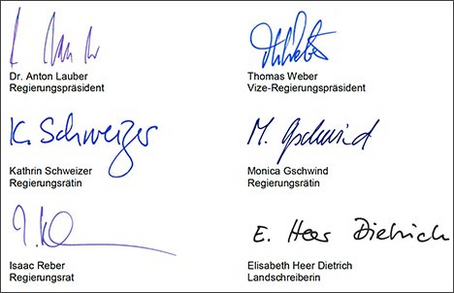 Dr. Anton Lauber
Regierungspräsident
Thomas Weber
Vize-Regierungspräsident
K. Schweizer
Kathrin Schweizer
Regierungsrätin
M. Gschwind
Monica Gschwind
Regierungsrätin
Isaac Reber
Regierungsrat
E. Heer Dietrich
Elisabeth Heer Dietrich
Landschreiberin